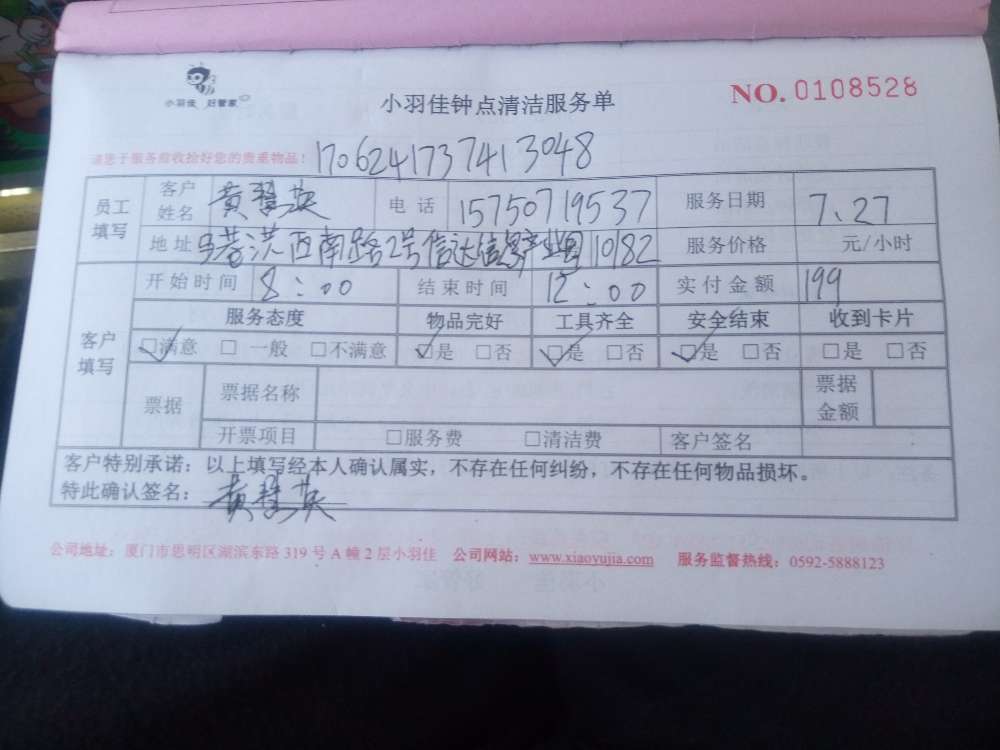 小羽佳 好管家
小羽佳钟点清洁服务单
NO. 0108528
请您于服务前收拾好您的贵重物品！
170624173741 3048
员工填写 客户姓名 黄慧英 电话 15750719537 服务日期 7、27
地址 马巷洪西南路2号信达信息产业园10/82 服务价格 元/小时
开始时间 8:00 结束时间 12:00 实付金额 199
客户填写 服务态度 物品完好 工具齐全 安全结束 收到卡片
☑满意 □一般 □不满意 ☑是 □否 ☑是 □否 ☑是 □否 □是 □否
票据 票据名称 票据金额
开票项目 □服务费 □清洁费 客户签名
客户特别承诺：以上填写经本人确认属实，不存在任何纠纷，不存在任何物品损坏。
特此确认签名：黄慧英
公司地址：厦门市思明区湖滨东路 319 号 A 幢 2 层小羽佳 公司网站：www.xiaoyujia.com 服务监督热线：0592-5888123